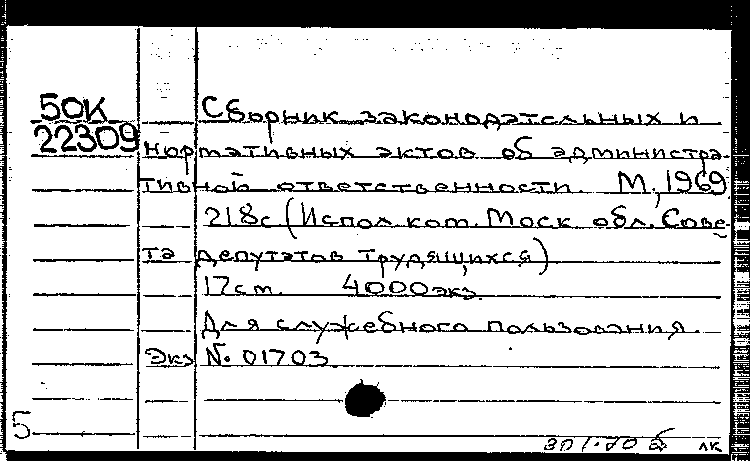 50К
22309
Сборник законодательных и
нормативных актов об администра-
тивной ответственности. М., 1969
218с (Испол. ком. Моск обл. Сове-
та депутатов трудящихся)
17см. 4000экз.
Для служебного пользования.
Экз № 01703
5
лк